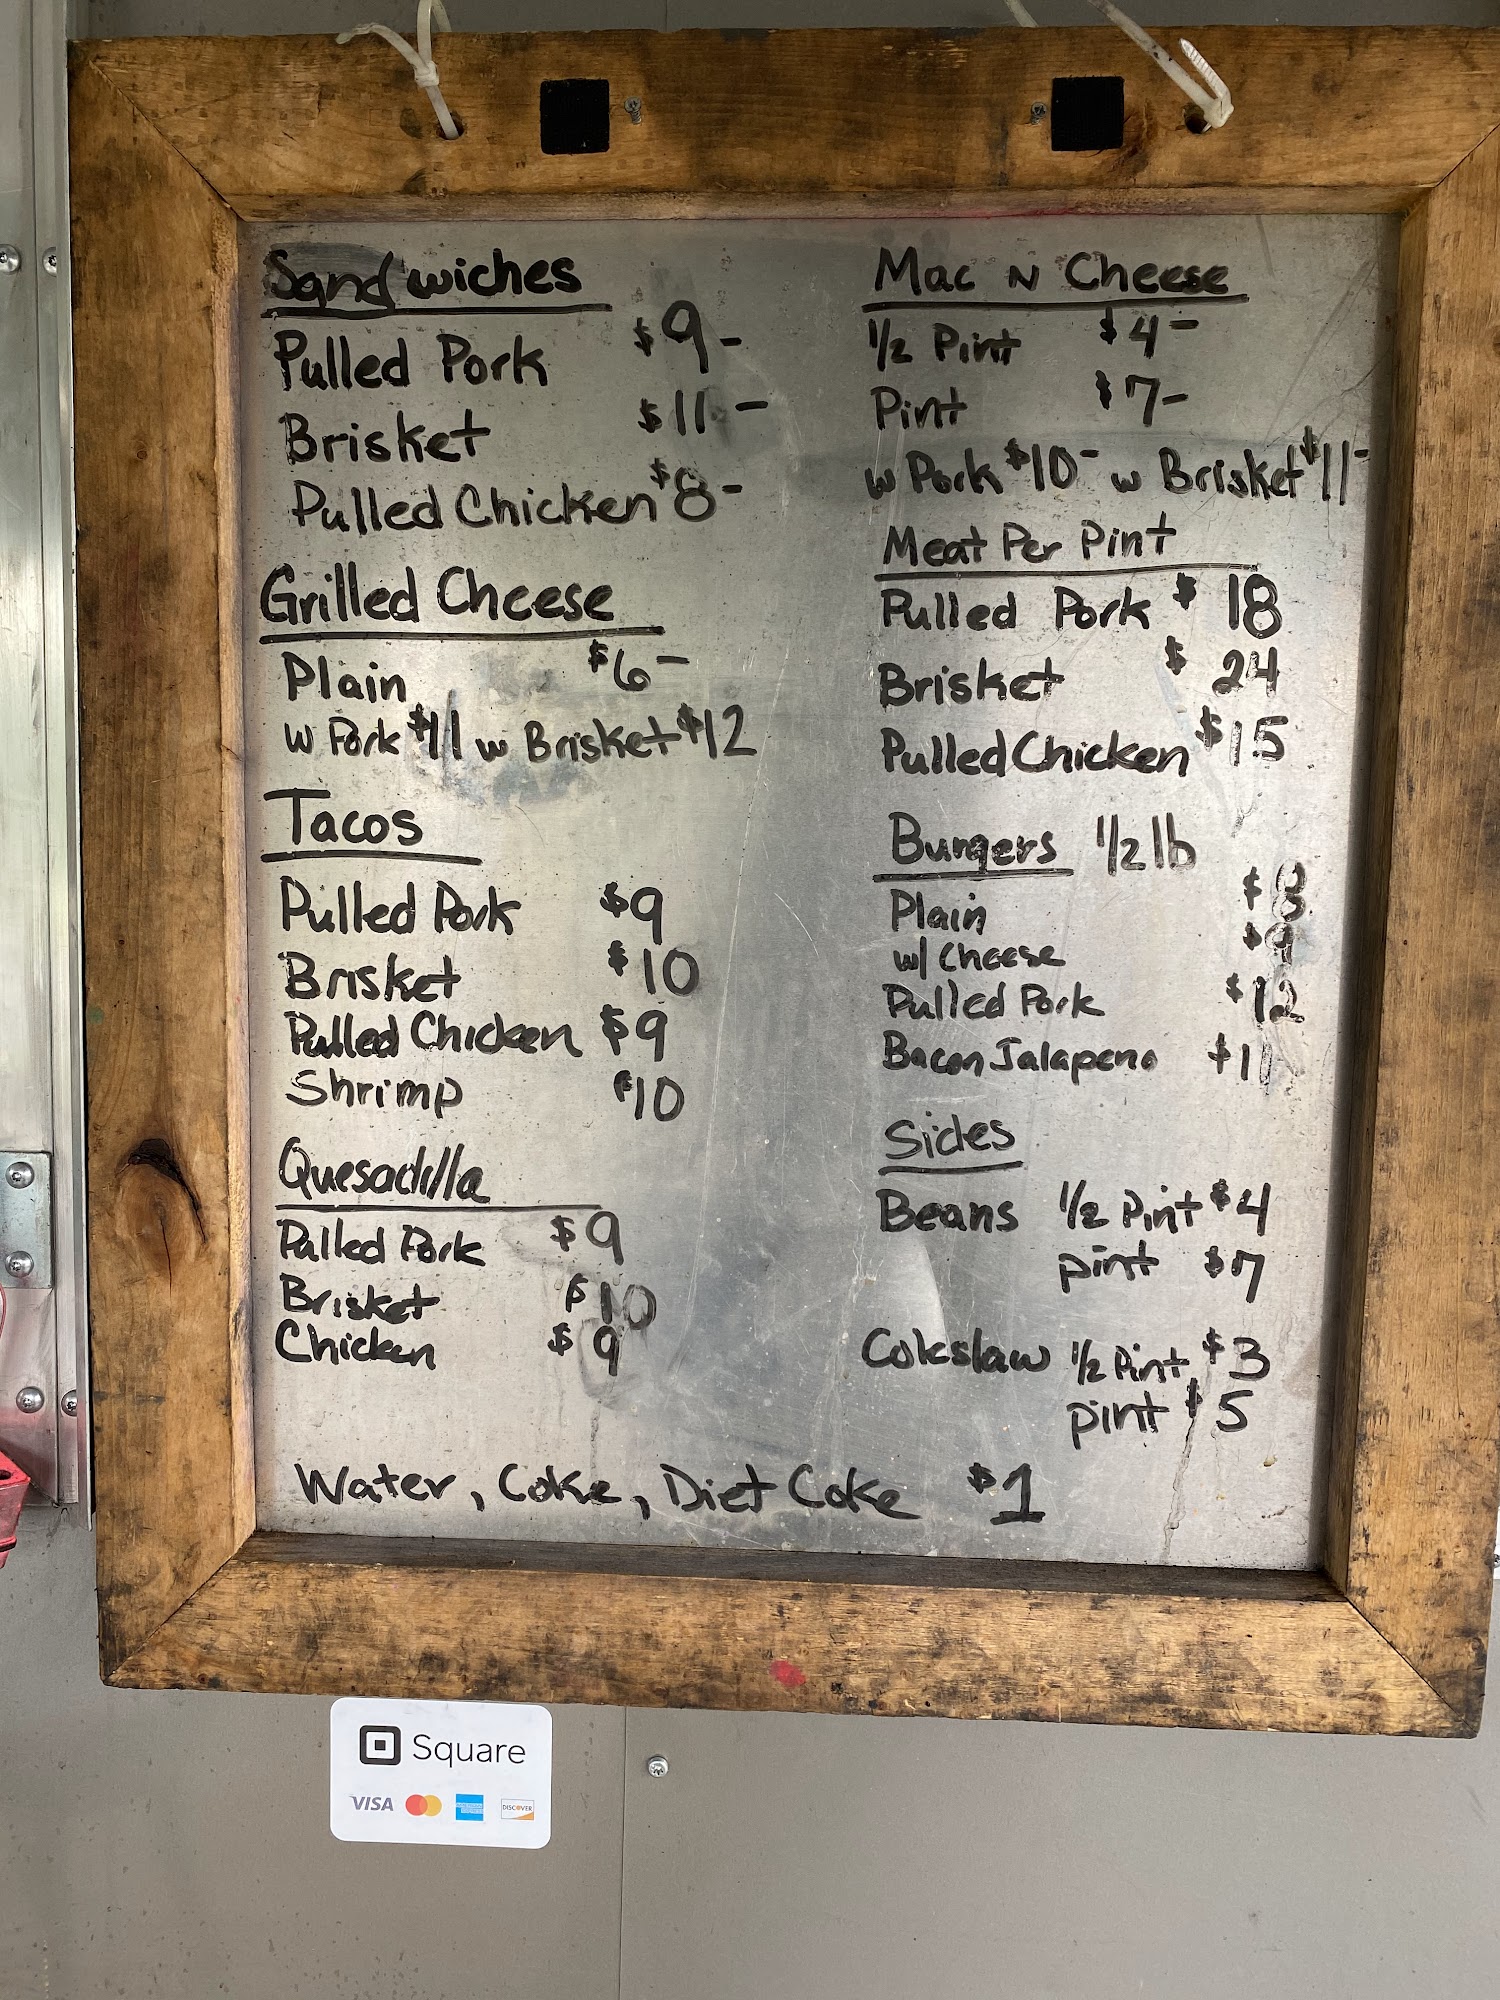 Sandwiches
Pulled Pork $9-
Brisket $11-
Pulled Chicken $8-
Grilled Cheese
Plain $6-
w Pork $11 w Brisket $12
Tacos
Pulled Pork $9
Brisket $10
Pulled Chicken $9
Shrimp $10
Quesadilla
Pulled Pork $9
Brisket $10
Chicken $9
Mac N Cheese
1/2 Pint $4-
Pint $7-
w Pork $10- w Brisket $11-
Meat Per Pint
Pulled Pork $18
Brisket $24
Pulled Chicken $15
Burgers 1/2 lb
Plain $8
w/ Cheese $9
Pulled Pork $12
Bacon Jalapeno $11
Sides
Beans 1/2 Pint $4
pint $7
Coleslaw 1/2 Pint $3
pint $5
Water, Coke, Diet Coke $1
Square
VISA DISCOVER